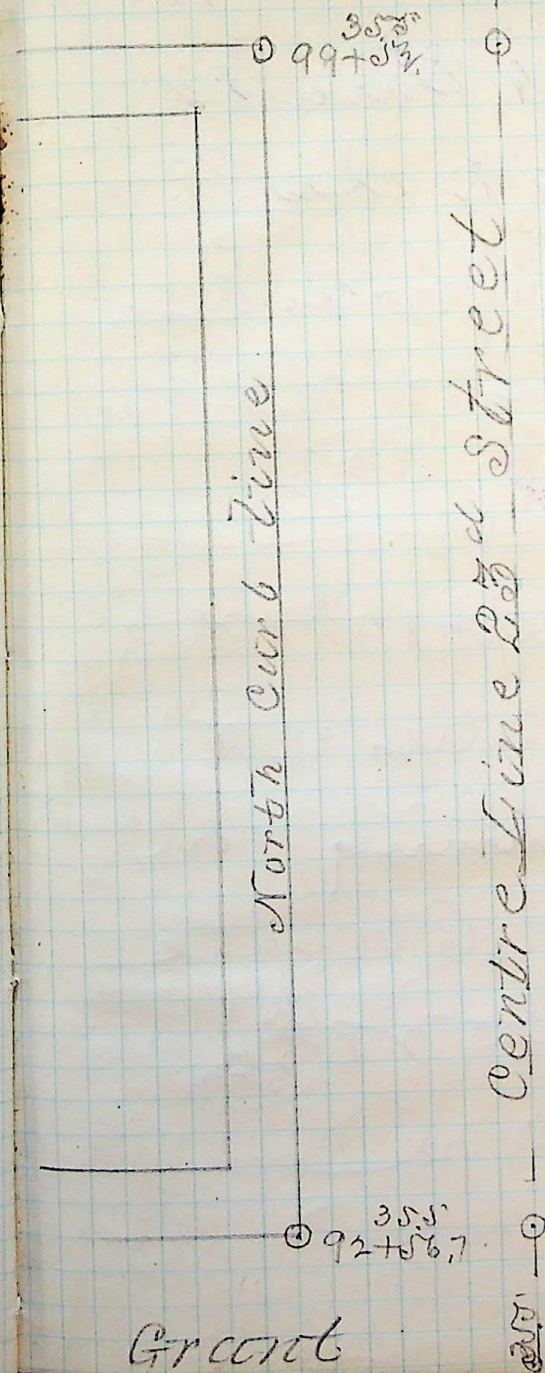 35.5
99+52.
North Curb Line
Centre Line 23d Street
35.5
92+56.7
Grant